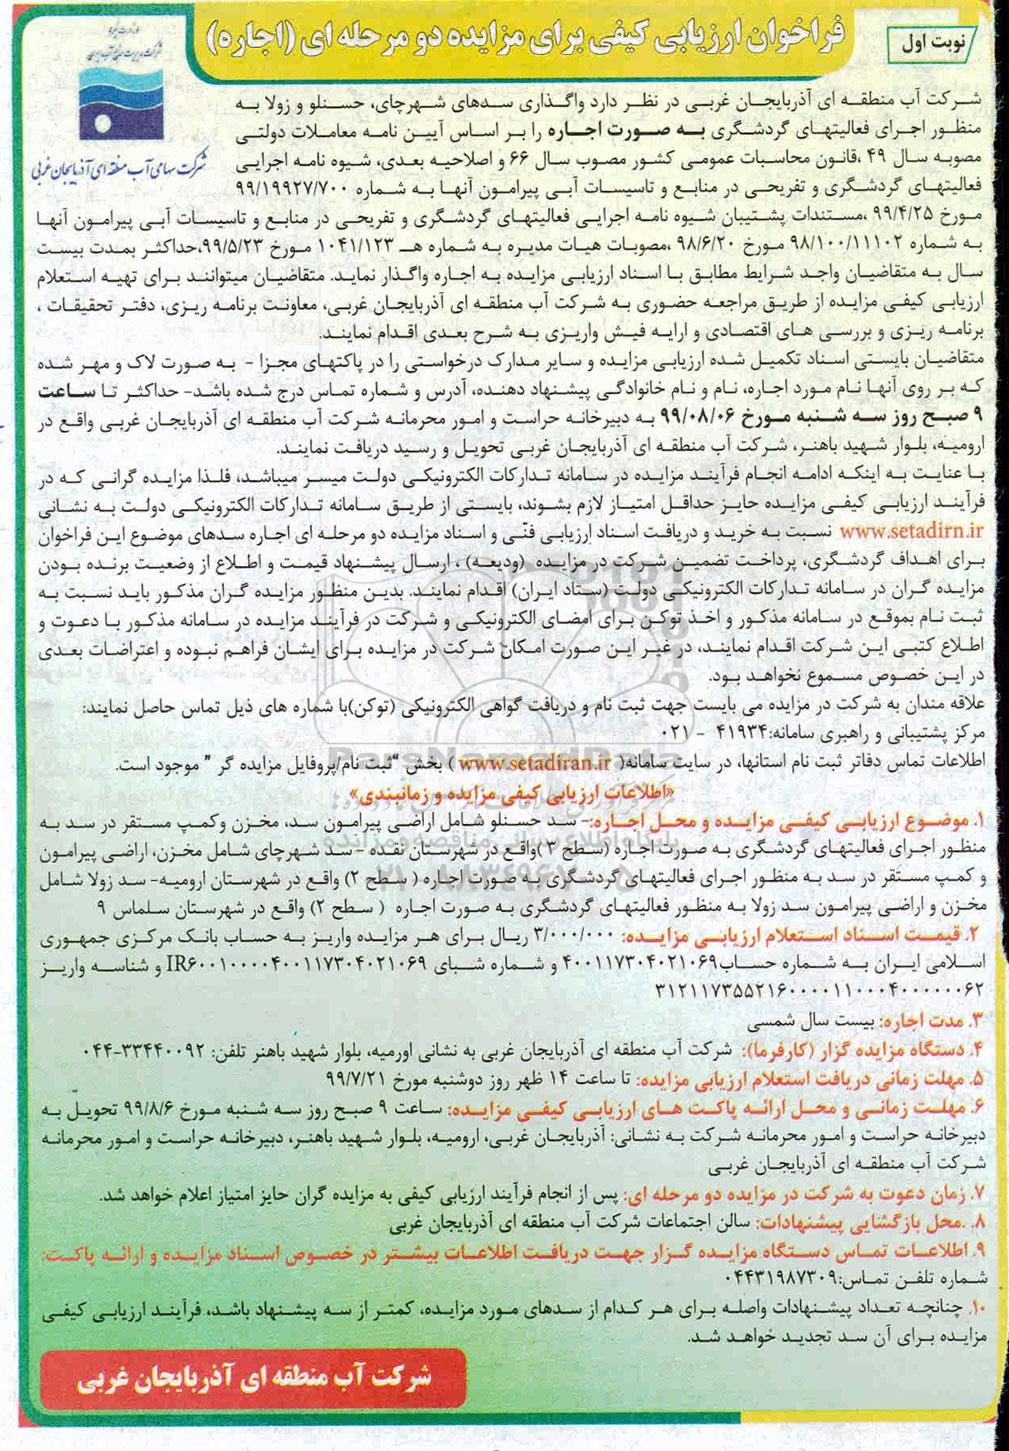 نوبت اول
فراخوان ارزیابی کیفی برای مزایده دو مرحله ای (اجاره)
شرکت سهامی آب منطقه ای آذربایجان غربی
شرکت آب منطقه ای آذربایجان غربی در نظر دارد واگذاری سدهای شهرچای، حسنلو و زولا به
منظور اجرای فعالیتهای گردشگری به صورت اجاره را بر اساس آیین نامه معاملات دولتی
مصوبه سال ۴۹ ،قانون محاسبات عمومی کشور مصوب سال ۶۶ و اصلاحیه بعدی، شیوه نامه اجرایی
فعالیتهای گردشگری و تفریحی در منابع و تاسیسات آبی پیرامون آنها به شماره ۹۹/۱۹۹۲۷/۷۰۰
مورخ ۹۹/۴/۲۵ ،مستندات پشتیبان شیوه نامه اجرایی فعالیتهای گردشگری و تفریحی در منابع و تاسیسات آبی پیرامون آنها
به شماره ۹۸/۱۰۰/۱۱۱۰۲ مورخ ۹۸/۶/۲۰ ،مصوبات هیات مدیره به شماره هـ ۱۰۴۱/۱۲۳ مورخ ۹۹/۵/۲۳،حداکثر بمدت بیست
سال به متقاضیان واجد شرایط مطابق با اسناد ارزیابی مزایده به اجاره واگذار نماید. متقاضیان میتوانند برای تهیه استعلام
ارزیابی کیفی مزایده از طریق مراجعه حضوری به شرکت آب منطقه ای آذربایجان غربی، معاونت برنامه ریزی، دفتر تحقیقات ،
برنامه ریزی و بررسی های اقتصادی و ارایه فیش واریزی به شرح بعدی اقدام نمایند.
متقاضیان بایستی اسناد تکمیل شده ارزیابی مزایده و سایر مدارک درخواستی را در پاکتهای مجزا - به صورت لاک و مهر شده
که بر روی آنها نام مورد اجاره، نام و نام خانوادگی پیشنهاد دهنده، آدرس و شماره تماس درج شده باشد- حداکثر تا ساعت
۹ صبح روز سه شنبه مورخ ۹۹/۰۸/۰۶ به دبیرخانه حراست و امور محرمانه شرکت آب منطقه ای آذربایجان غربی واقع در
ارومیه، بلوار شهید باهنر، شرکت آب منطقه ای آذربایجان غربی تحویل و رسید دریافت نمایند.
با عنایت به اینکه ادامه انجام فرآیند مزایده در سامانه تدارکات الکترونیکی دولت میسر میباشد، فلذا مزایده گرانی که در
فرآیند ارزیابی کیفی مزایده حایز حداقل امتیاز لازم بشوند، بایستی از طریق سامانه تدارکات الکترونیکی دولت به نشانی
www.setadirn.ir نسبت به خرید و دریافت اسناد ارزیابی فنّی و اسناد مزایده دو مرحله ای اجاره سدهای موضوع این فراخوان
برای اهداف گردشگری، پرداخت تضمین شرکت در مزایده (ودیعه) ، ارسال پیشنهاد قیمت و اطلاع از وضعیت برنده بودن
مزایده گران در سامانه تدارکات الکترونیکی دولت (ستاد ایران) اقدام نمایند. بدین منظور مزایده گران مذکور باید نسبت به
ثبت نام بموقع در سامانه مذکور و اخذ توکن برای امضای الکترونیکی و شرکت در فرآیند مزایده در سامانه مذکور با دعوت و
اطلاع کتبی این شرکت اقدام نمایند، در غیر این صورت امکان شرکت در مزایده برای ایشان فراهم نبوده و اعتراضات بعدی
در این خصوص مسموع نخواهد بود.
علاقه مندان به شرکت در مزایده می بایست جهت ثبت نام و دریافت گواهی الکترونیکی (توکن)با شماره های ذیل تماس حاصل نمایند:
مرکز پشتیبانی و راهبری سامانه:۴۱۹۳۴ - ۰۲۱
اطلاعات تماس دفاتر ثبت نام استانها، در سایت سامانه( www.setadiran.ir ) بخش "ثبت نام/پروفایل مزایده گر " موجود است.
«اطلاعات ارزیابی کیفی مزایده و زمانبندی»
۱. موضوع ارزیابی کیفی مزایده و محل اجاره:- سد حسنلو شامل اراضی پیرامون سد، مخزن وکمپ مستقر در سد به
منظور اجرای فعالیتهای گردشگری به صورت اجاره (سطح ۳ )واقع در شهرستان نقده - سد شهرچای شامل مخزن، اراضی پیرامون
و کمپ مستقر در سد به منظور اجرای فعالیتهای گردشگری به صورت اجاره ( سطح ۲) واقع در شهرستان ارومیه- سد زولا شامل
مخزن و اراضی پیرامون سد زولا به منظور فعالیتهای گردشگری به صورت اجاره ( سطح ۲) واقع در شهرستان سلماس ۹
۲. قیمت اسناد استعلام ارزیابی مزایده: ۳/۰۰۰/۰۰۰ ریال برای هر مزایده واریز به حساب بانک مرکزی جمهوری
اسلامی ایران به شماره حساب۴۰۰۱۱۷۳۰۴۰۲۱۰۶۹ و شماره شبای IR۶۰۰۱۰۰۰۰۴۰۰۱۱۷۳۰۴۰۲۱۰۶۹ و شناسه واریز
۳۱۲۱۱۷۳۵۵۲۱۶۰۰۰۰۱۱۰۰۰۴۰۰۰۰۰۰۶۲
۳. مدت اجاره: بیست سال شمسی
۴. دستگاه مزایده گزار (کارفرما): شرکت آب منطقه ای آذربایجان غربی به نشانی اورمیه، بلوار شهید باهنر تلفن: ۳۳۴۴۰۰۹۲-۰۴۴
۵. مهلت زمانی دریافت استعلام ارزیابی مزایده: تا ساعت ۱۴ ظهر روز دوشنبه مورخ ۹۹/۷/۲۱
۶. مهلت زمانی و محل ارائه پاکت های ارزیابی کیفی مزایده: ساعت ۹ صبح روز سه شنبه مورخ ۹۹/۸/۶ تحویل به
دبیرخانه حراست و امور محرمانه شرکت به نشانی: آذربایجان غربی، ارومیه، بلوار شهید باهنر، دبیرخانه حراست و امور محرمانه
شرکت آب منطقه ای آذربایجان غربی
۷. زمان دعوت به شرکت در مزایده دو مرحله ای: پس از انجام فرآیند ارزیابی کیفی به مزایده گران حایز امتیاز اعلام خواهد شد.
۸. .محل بازگشایی پیشنهادات: سالن اجتماعات شرکت آب منطقه ای آذربایجان غربی
۹. اطلاعات تماس دستگاه مزایده گزار جهت دریافت اطلاعات بیشتر در خصوص اسناد مزایده و ارائه پاکت:
شماره تلفن تماس:۰۴۴۳۱۹۸۷۳۰۹
۱۰. چنانچه تعداد پیشنهادات واصله برای هر کدام از سدهای مورد مزایده، کمتر از سه پیشنهاد باشد، فرآیند ارزیابی کیفی
مزایده برای آن سد تجدید خواهد شد.
شرکت آب منطقه ای آذربایجان غربی